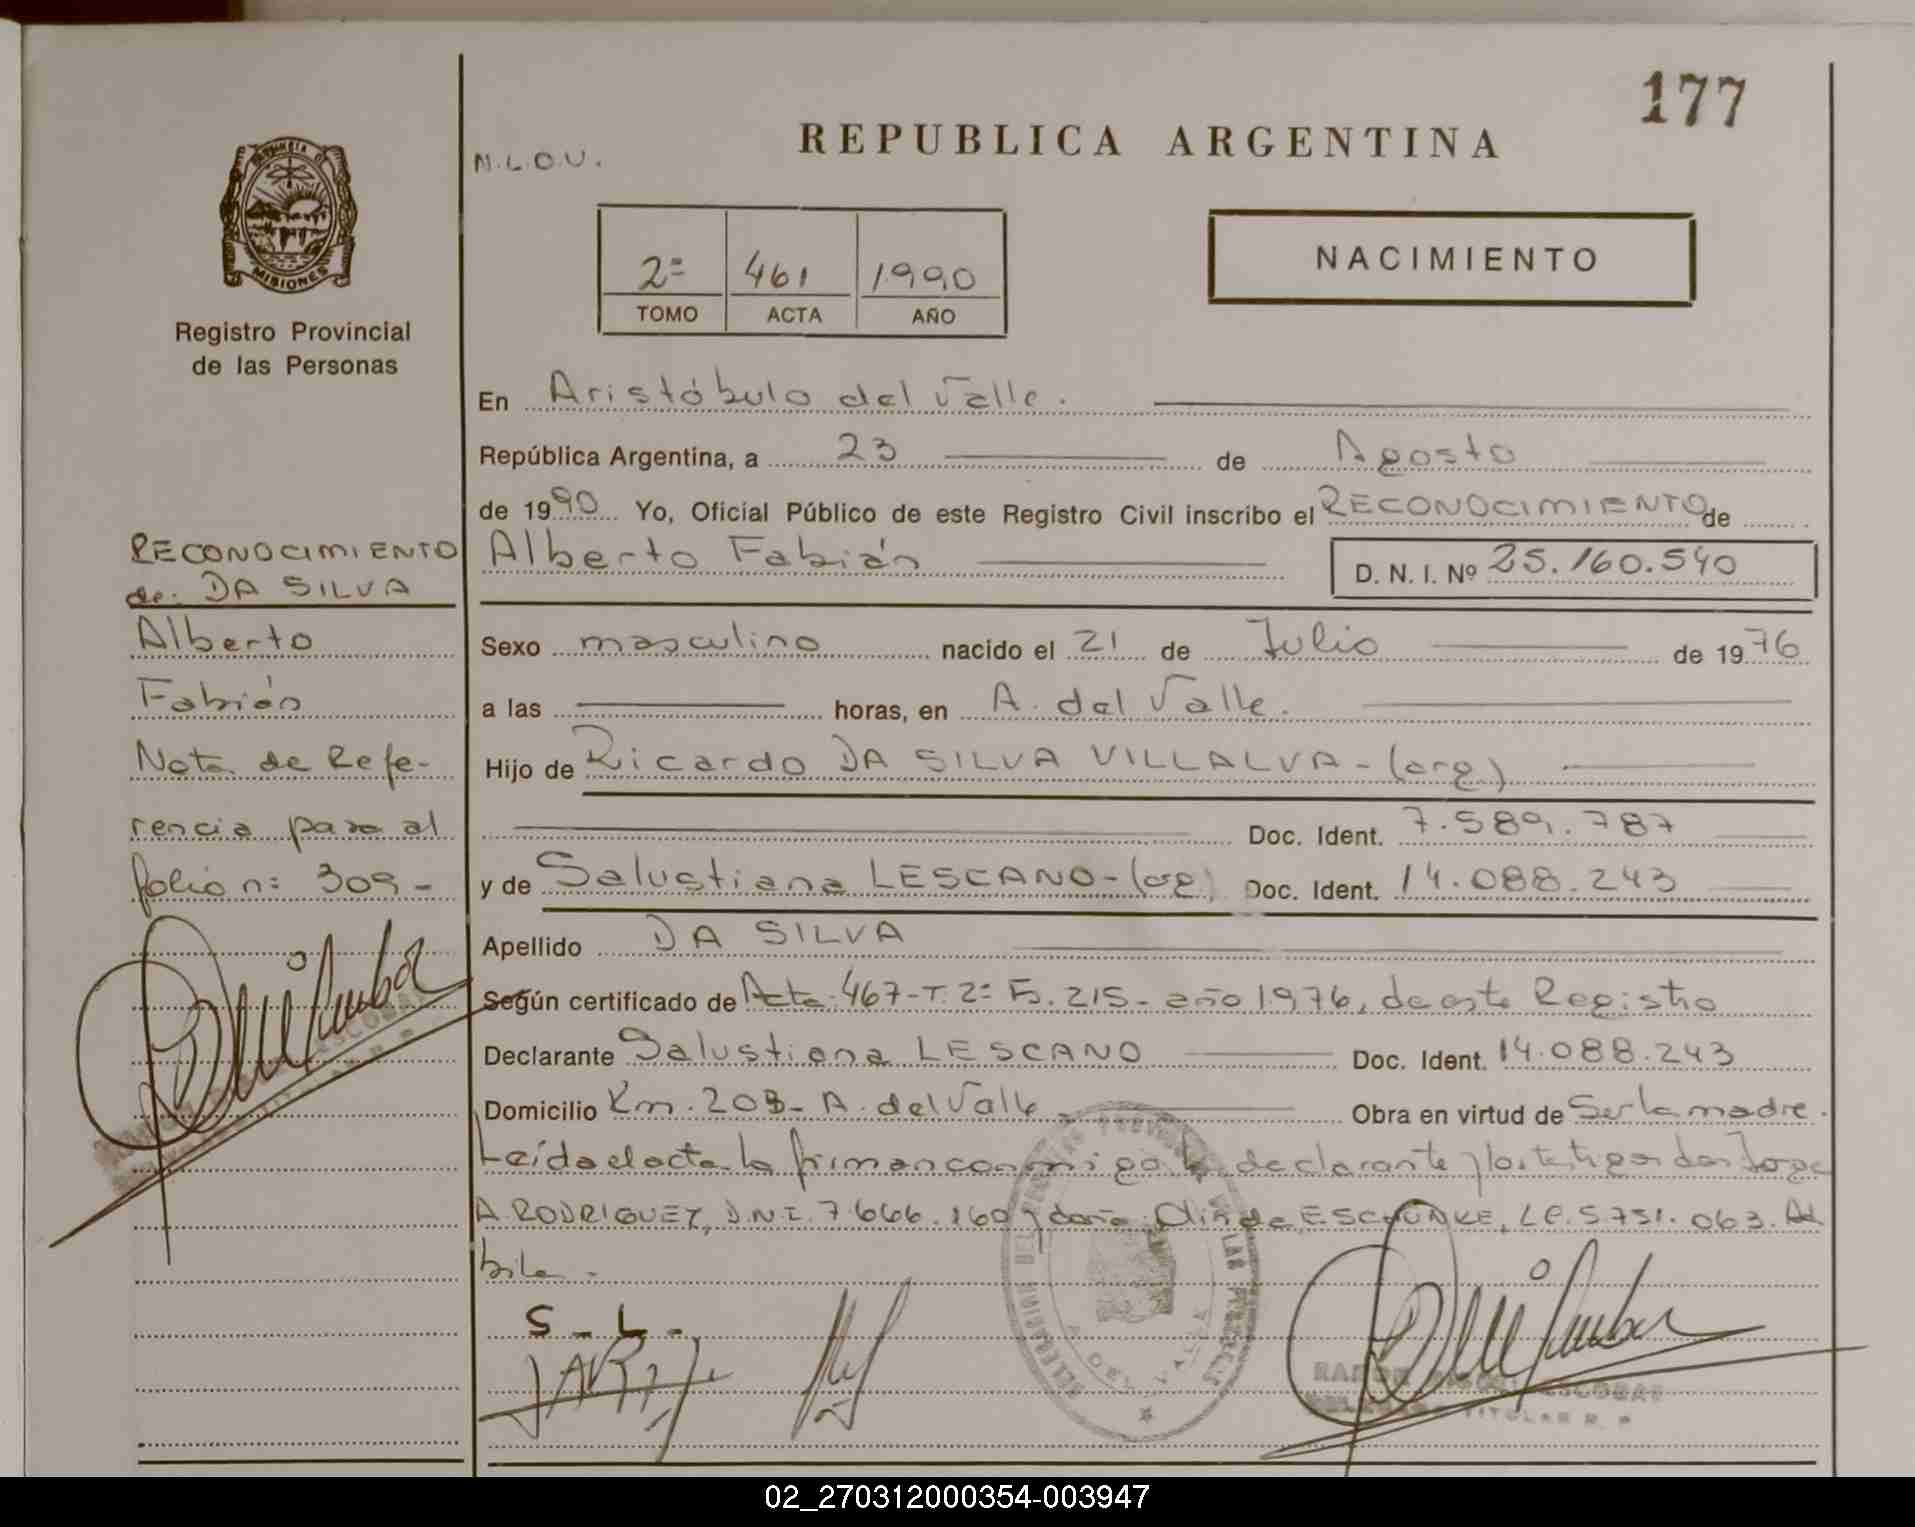 177
REPUBLICA ARGENTINA
N.L.O.U.
PROVINCIA D
MISIONES
Registro Provincial
de las Personas
NACIMIENTO
2º 461 1990
TOMO ACTA AÑO
En Aristóbulo del Valle.
República Argentina, a 23 de Agosto
de 1990 Yo, Oficial Público de este Registro Civil inscribo el RECONOCIMIENTO de
Alberto Fabián D. N. I. Nº 25.160.540
Sexo masculino nacido el 21 de Julio de 1976
a las horas, en A. del Valle.
Hijo de Ricardo DA SILVA VILLALVA - (arg)
Doc. Ident. 7.589.787
y de Salustiana LESCANO - (arg) Doc. Ident. 14.088.243
Apellido DA SILVA
Según certificado de Acta: 467-T. 2º F. 215- año 1976, de este Registro
Declarante Salustiana LESCANO Doc. Ident. 14.088.243
Domicilio Km. 208- A. del Valle Obra en virtud de Ser la madre.
Leída el acta la firman conmigo la declarante y los testigos don Jorge
A. RODRIGUEZ, D.N.I. 7.666.160 y doña Olinda E. SCHUNKE, LC. 5.751.063. Al
S. L.
RECONOCIMIENTO
de: DA SILVA
Alberto
Fabián
Nota de Refe-
rencia pasa al
folio nº 309-
ESCOBAR
ESCOBAR
TITULAR R. P.
02_270312000354-003947